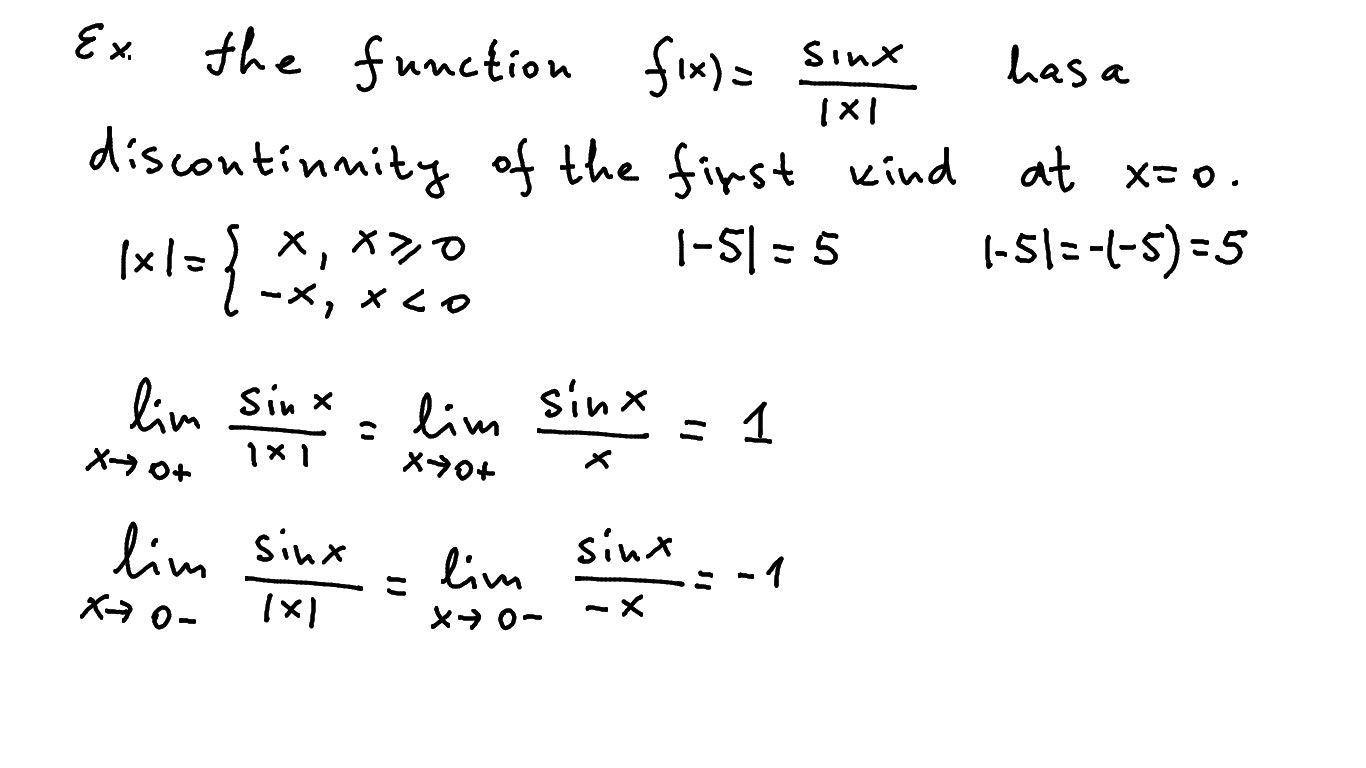 Ex. the function f(x) = sinx / |x| has a
discontinuity of the first kind at x=0.
|x| = { x, x ⩾ 0 |-5| = 5 |-5| = -(-5) = 5
-x, x < 0
lim x→0+ sin x / |x| = lim x→0+ sin x / x = 1
lim x→0- sinx / |x| = lim x→0- sinx / -x = -1